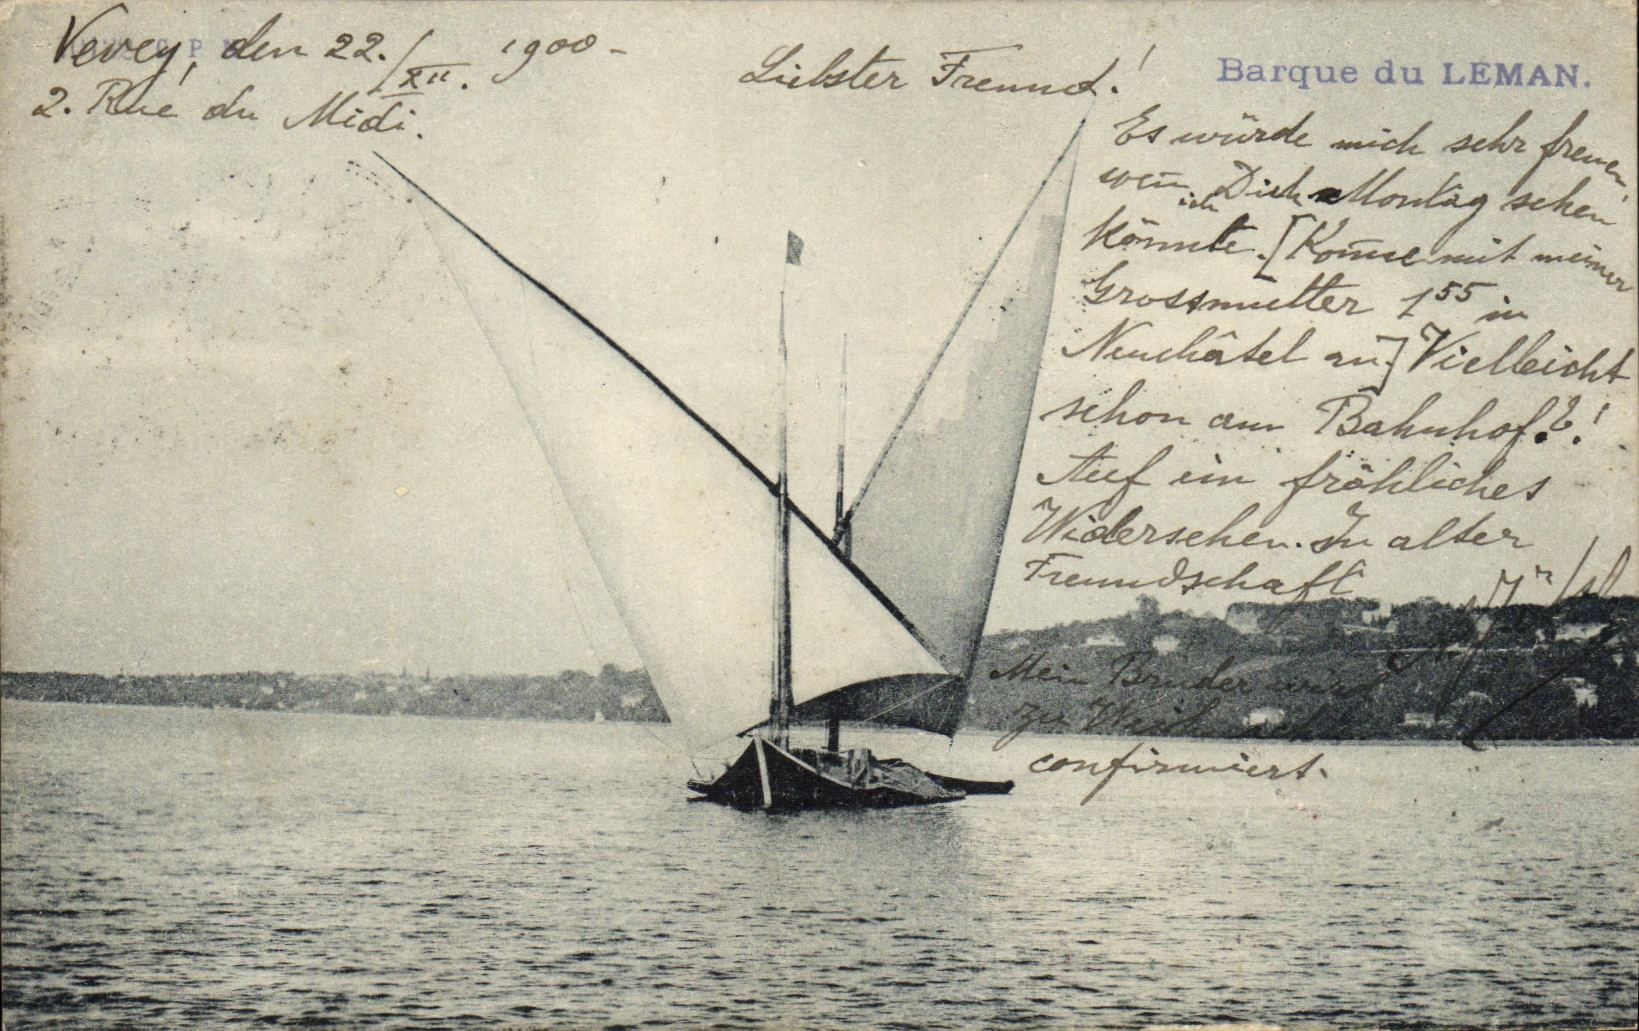 Vevey, den 22./XII. 1900-
2. Rue du Midi.
Liebster Freund!
Barque du LEMAN.
Es würde mich sehr freuen,
wen̅ ich Dich Montag sehen
könnte. [Kom̅e mit meiner
Grossmutter 1⁵⁵ in
Neuchâtel an] Vielleicht
schon am Bahnhof?!
Auf ein fröhliches
Widersehen. In alter
Freundschaft
Mein Bruder wird
zu
confirmiert.